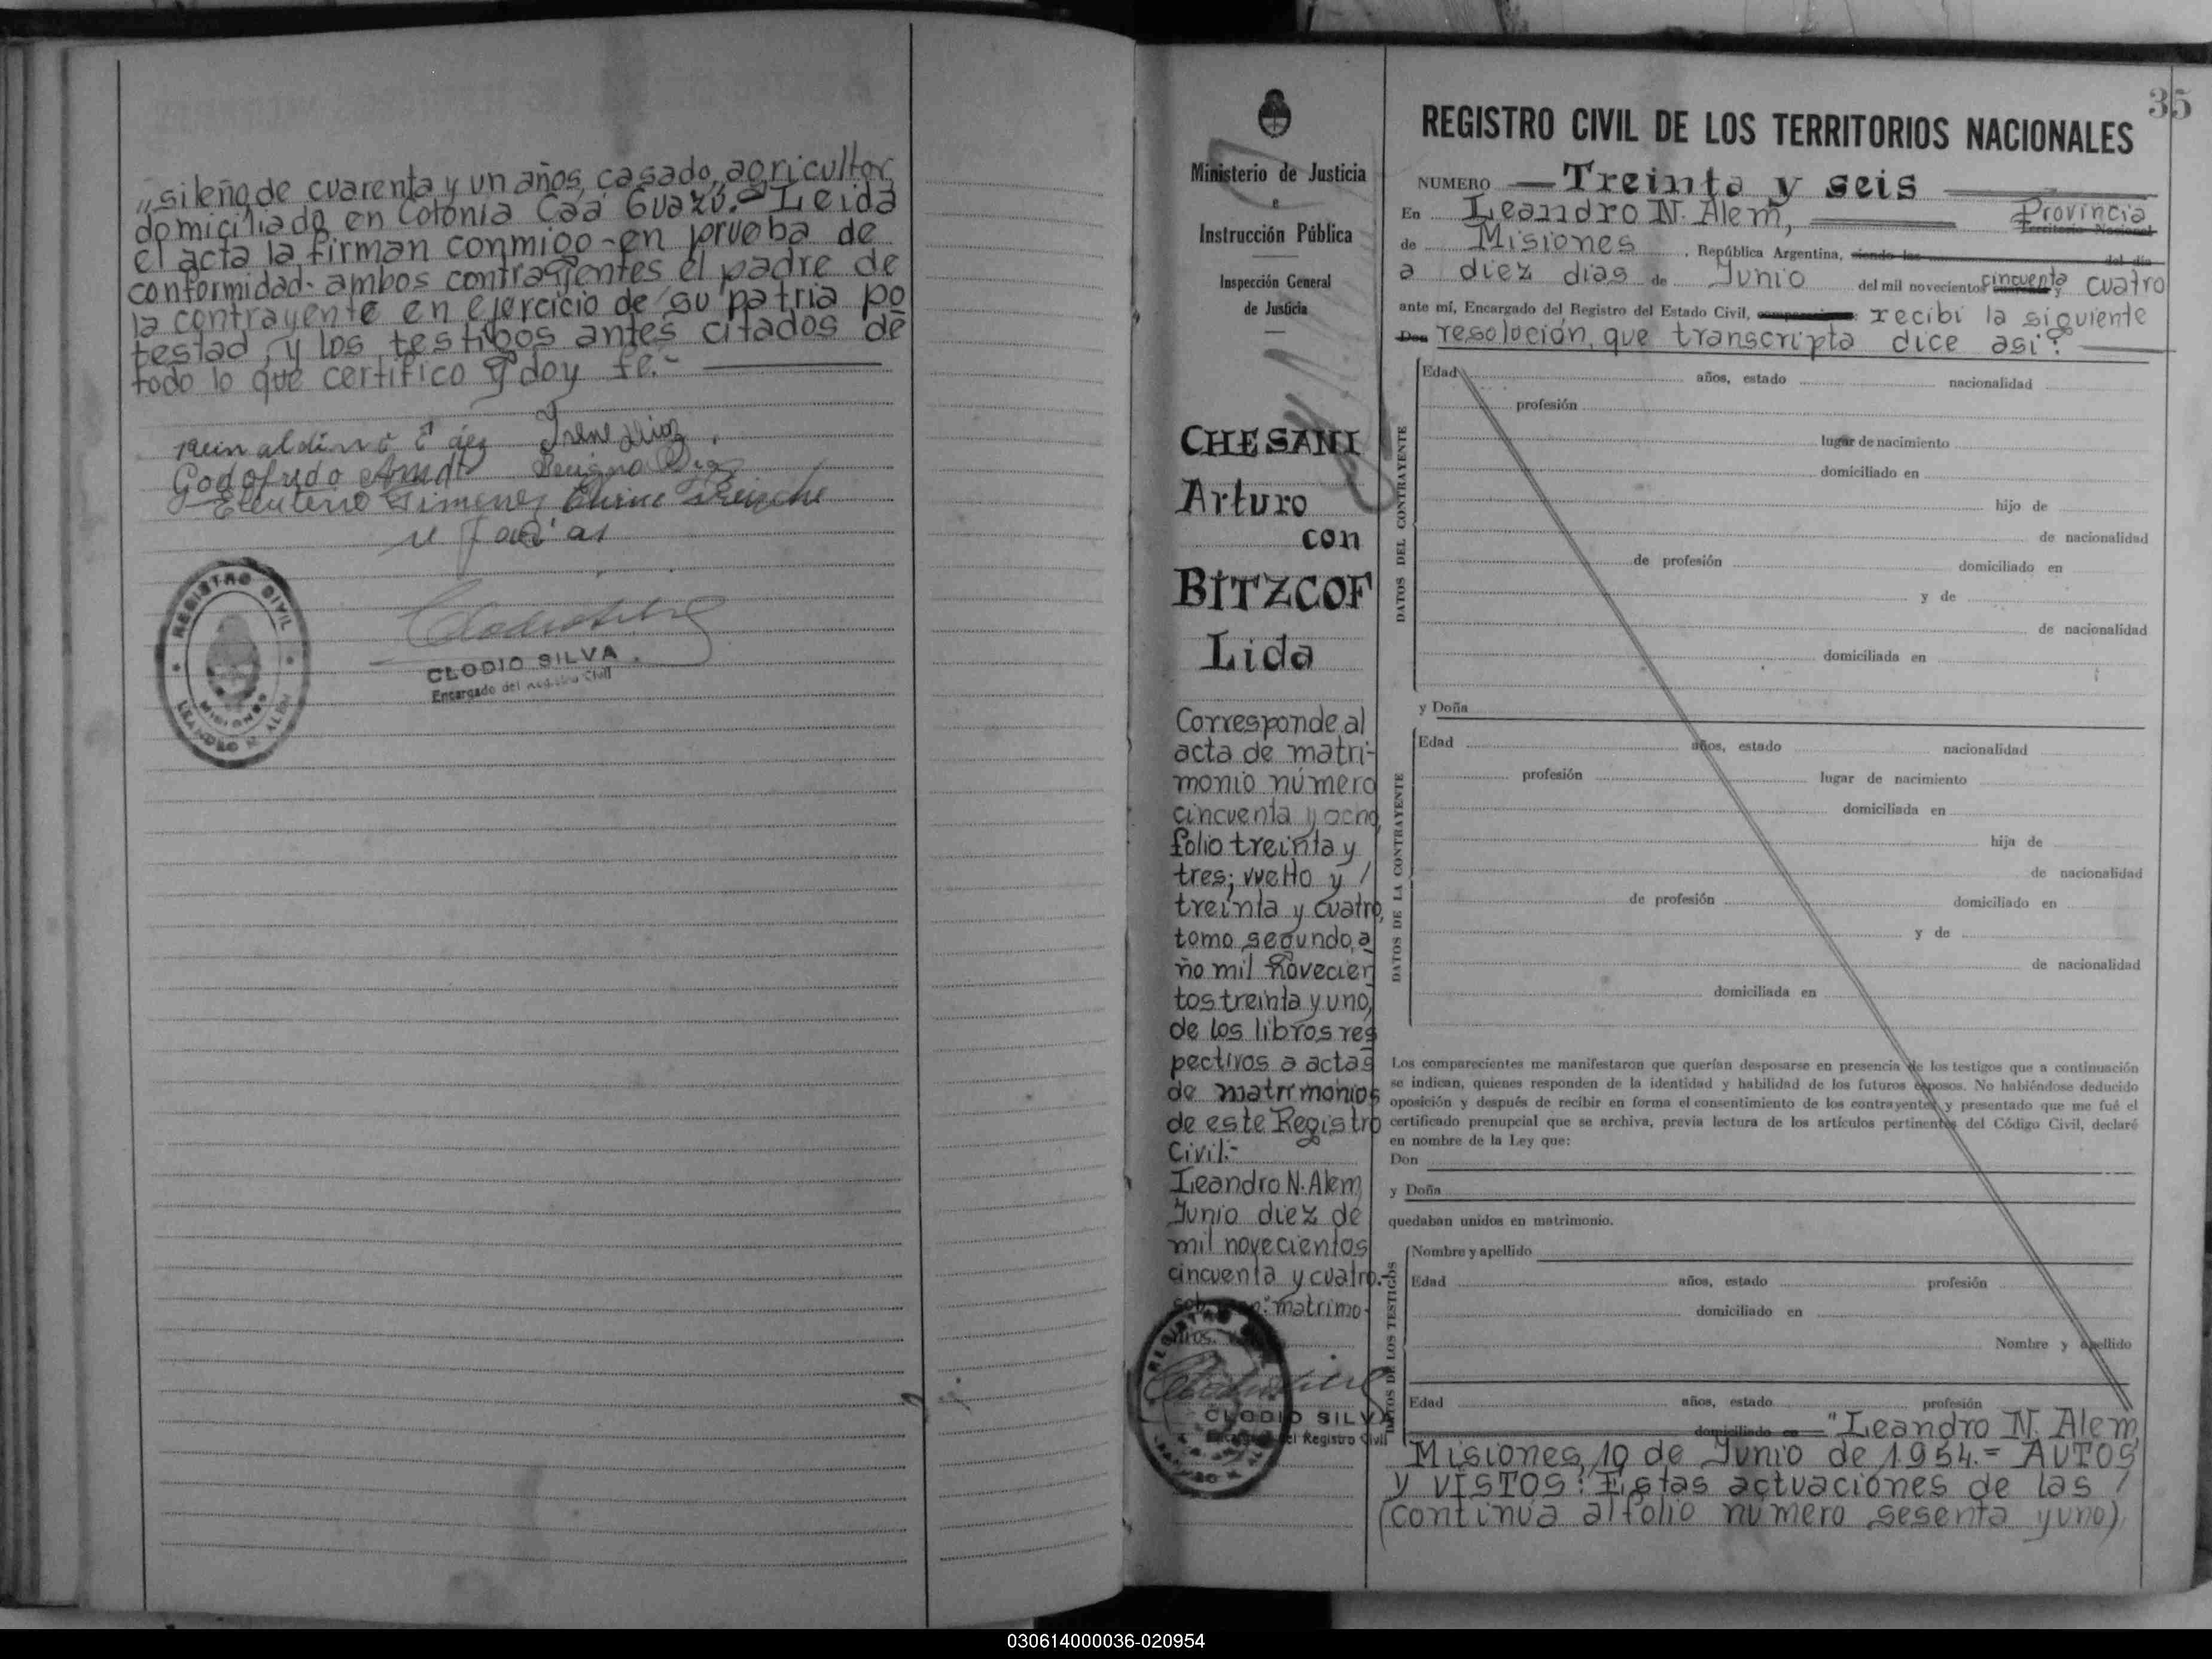 „sileño de cuarenta y un años, casado, agricultor,
domiciliado en Colonia Caá Guazú.- Leida
el acta la firman conmigo en prueba de
conformidad ambos contrayentes el padre de
la contrayente en ejercicio de su patria po
testad, y los testigos antes citados de
todo lo que certifico y doy fe.-
Irene
Godofredo
Eleuterio Gimenez
REGISTRO CIVIL
MISIONES
LEANDRO N. ALEM
CLODIO SILVA
Encargado del Registro Civil
35
Ministerio de Justicia
e
Instrucción Pública
Inspección General
de Justicia
CHESANI
Arturo
con
BITZCOF
Lida
Corresponde al
acta de matri-
monio número
cincuenta y ocho,
folio treinta y
tres; vuelto y /
treinta y cuatro,
tomo segundo, a
ño mil novecien
tos treinta y uno,
de los libros res
pectivos a actas
de matrimonios
de este Registro
Civil.-
Leandro N. Alem
Junio diez de
mil novecientos
cincuenta y cuatro.-
matrimo-
CLODIO SILVA
Encargado del Registro Civil
REGISTRO CIVIL DE LOS TERRITORIOS NACIONALES
NUMERO Treinta y seis
En Leandro N. Alem, Provincia
Territorio Nacional
de Misiones, República Argentina, siendo las del día
a diez dias de Junio del mil novecientos cincuenta y cuatro
ante mí, Encargado del Registro del Estado Civil, recibí la siguiente
Don resolución, que transcripta dice asi:
DATOS DEL CONTRAYENTE
Edad años, estado nacionalidad
profesión
lugar de nacimiento
domiciliado en
hijo de
de nacionalidad
de profesión domiciliado en
y de
de nacionalidad
domiciliada en
y Doña
DATOS DE LA CONTRAYENTE
Edad años, estado nacionalidad
profesión lugar de nacimiento
domiciliada en
hija de
de nacionalidad
de profesión domiciliado en
y de
de nacionalidad
domiciliada en
Los comparecientes me manifestaron que querían desposarse en presencia de los testigos que a continuación
se indican, quienes responden de la identidad y habilidad de los futuros esposos. No habiéndose deducido
oposición y después de recibir en forma el consentimiento de los contrayentes y presentado que me fué el
certificado prenupcial que se archiva, previa lectura de los artículos pertinentes del Código Civil, declaré
en nombre de la Ley que:
Don
y Doña
quedaban unidos en matrimonio.
DATOS DE LOS TESTIGOS
Nombre y apellido
Edad años, estado profesión
domiciliado en
Nombre y apellido
Edad años, estado profesión
domiciliado en "Leandro N. Alem,
Misiones, 10 de Junio de 1954.- AUTOS
y VISTOS: Estas actuaciones de las /
(continúa al folio número sesenta y uno)
030614000036-020954